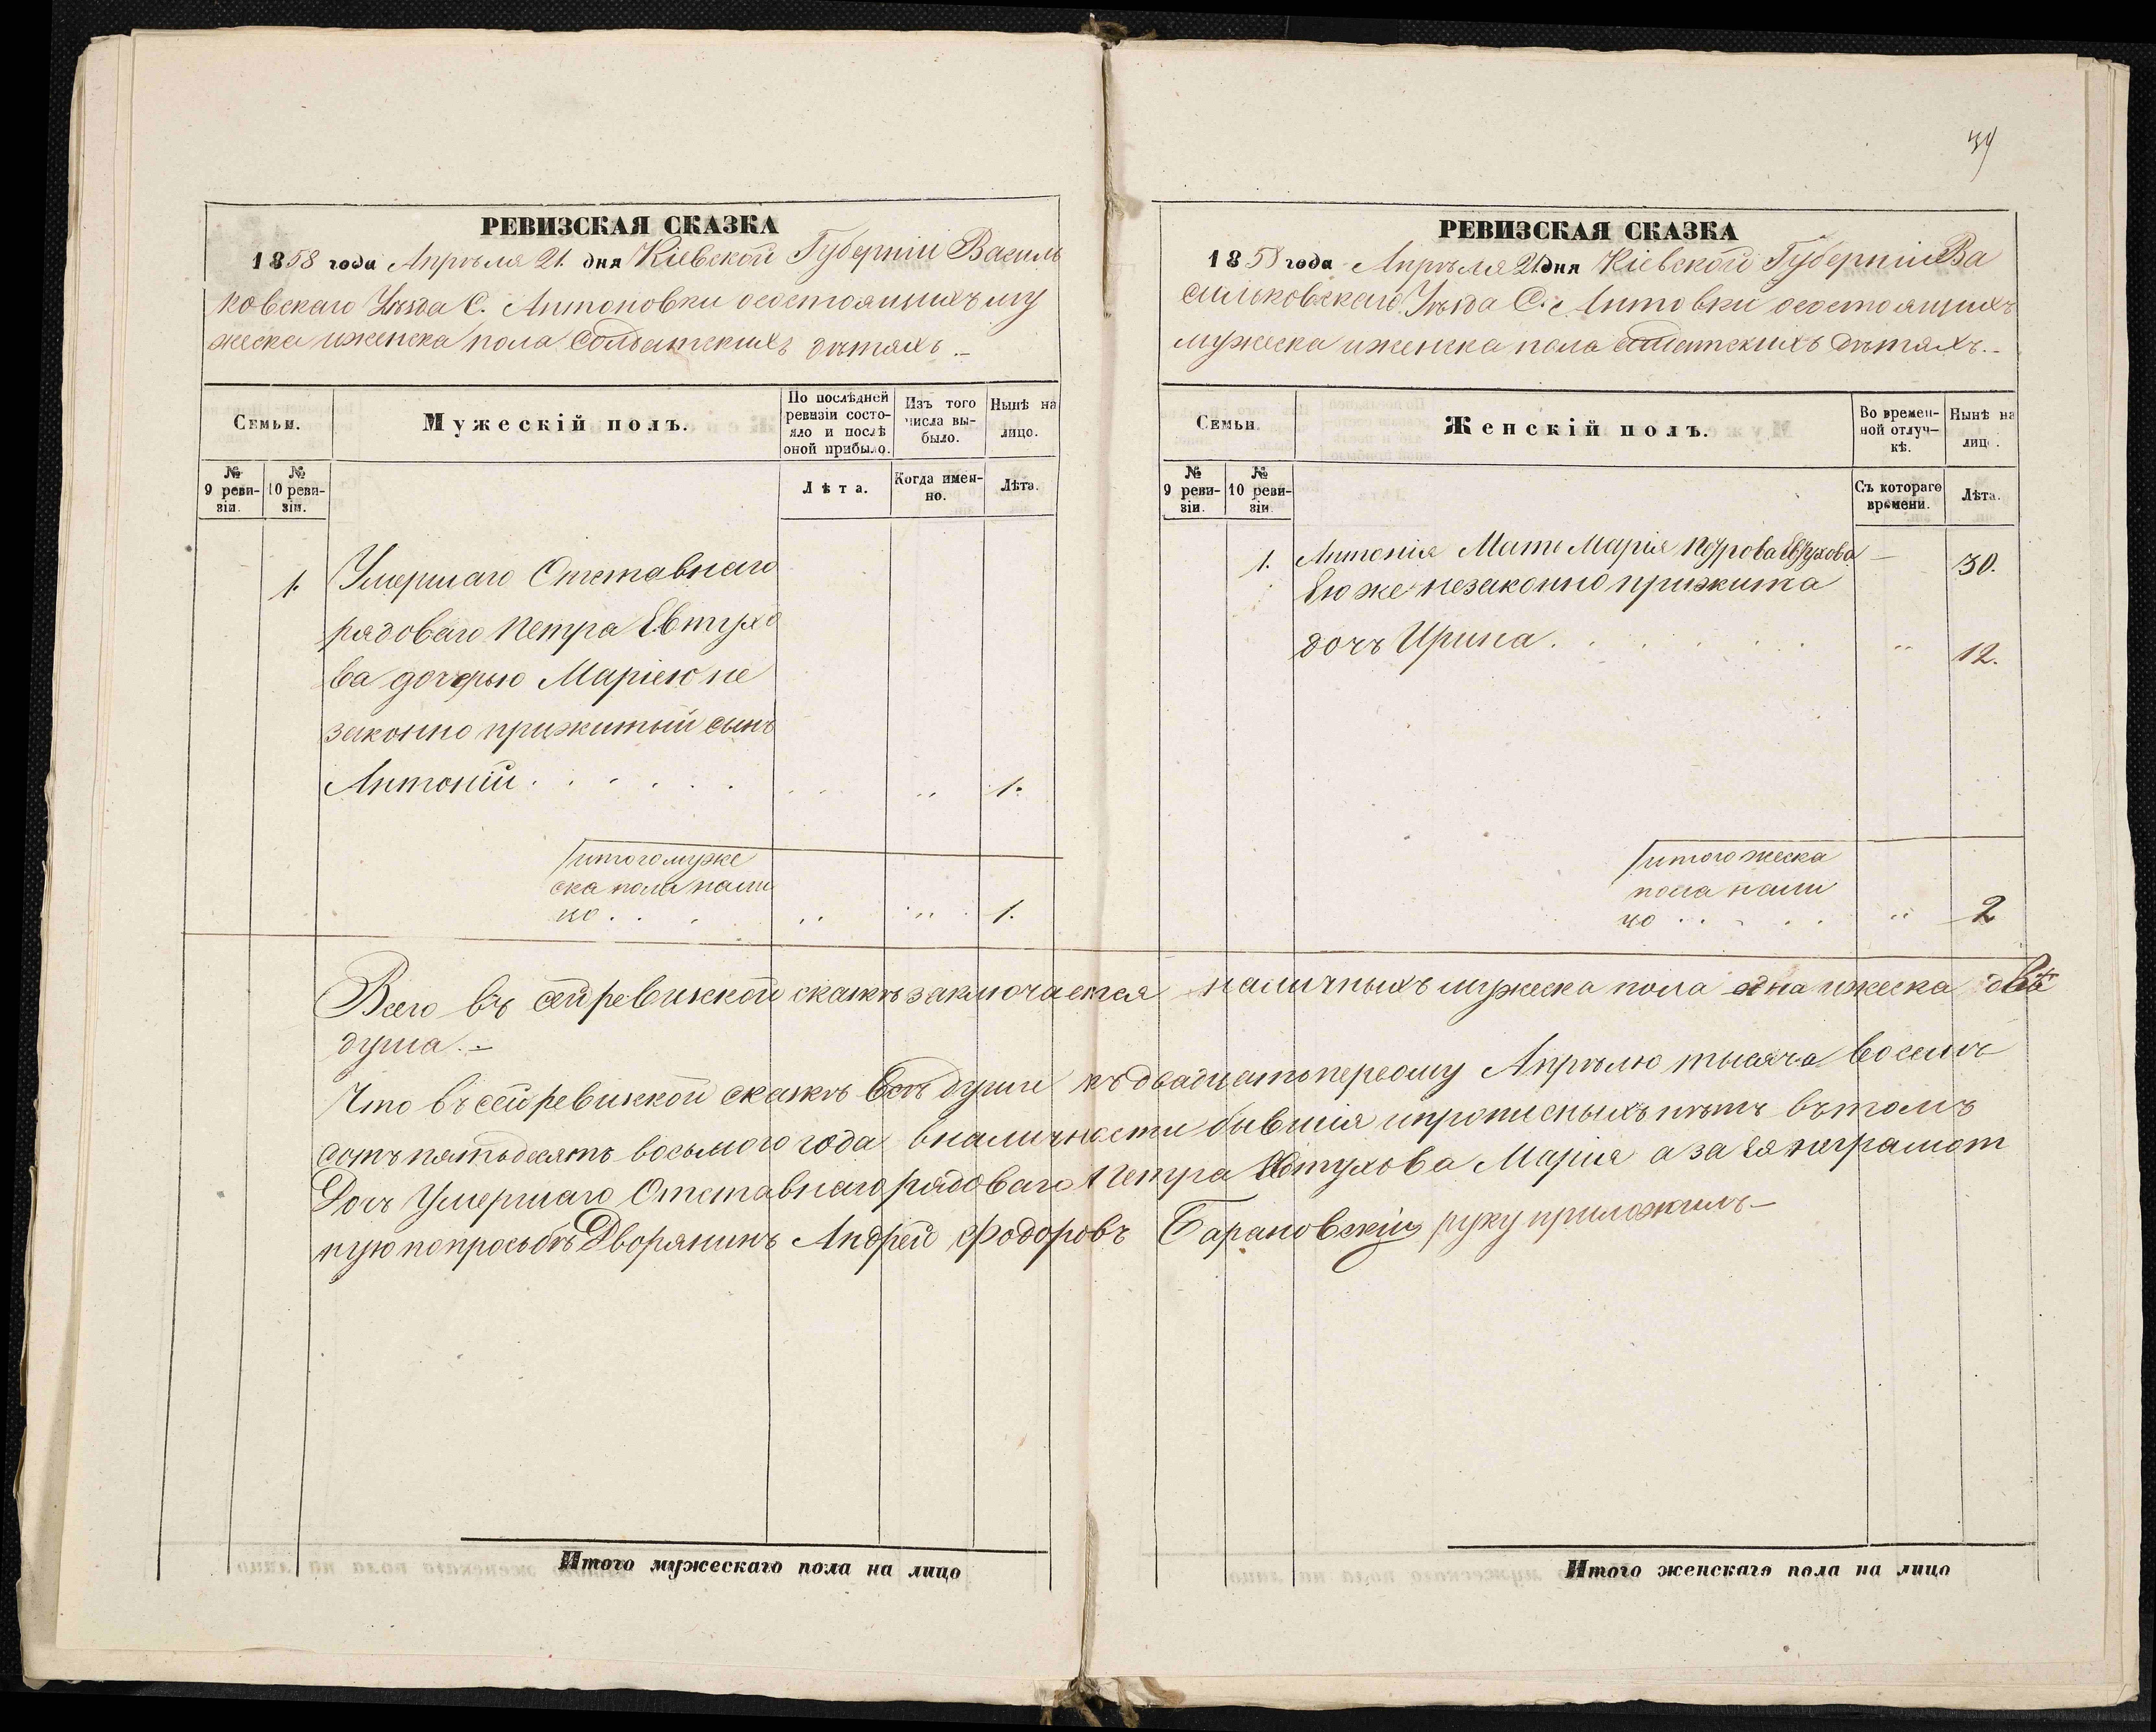 34
РЕВИЗСКАЯ СКАЗКА
1858 года Апрѣля 21. дня Кіевской Губерніи Василь
ковскаго Уѣзда С. Антоновки осостоящихъ му
жеска иженска пола Солдатскихъ дѣтяхъ.
Семьи.
Мужескій полъ.
По послѣдней ревизіи состояло и послѣ оной прибыло.
Изъ того числа выбыло.
Нынѣ на лицо.
№ 9 ревизіи.
№ 10 ревизіи.
Лѣта.
Когда именно.
Лѣта.
1. Умершаго Отставнаго
рядоваго Петра Евтухо
ва дочерью Маріею не
законно прижитый сынъ
Антоній . . . . . . 1.
итого муже
ска пола нали
цо . . . 1.
РЕВИЗСКАЯ СКАЗКА
1858 года Апрѣля 21 дня Кіевской Губерніи Ва
сильковскаго Уѣзда С. Антовки осостоящихъ
мужеска иженска пола солдатскихъ дѣтяхъ.
Семьи.
Женскій полъ.
Во временной отлучкѣ.
Нынѣ на лицо.
№ 9 ревизіи.
№ 10 ревизіи.
Съ котораго времени.
Лѣта.
1. Антонія Мати Марія Петрова Евтухова — 30.
Ею же незаконно прижита
дочъ Ирина . . . . . 12.
итого жеска
пола нали
цо . . . . . 2
Всего въ сей ревизской сказкѣ заключается наличныхъ мужеска пола одна ижеска двѣ
душа.
Что въ сей ревизкой сказкѣ всѣ души къ двадцатьпервому Апрѣлю тысяча восемъ
сотъ пятьдесятъ восьмого года вналичности бывшія ипрописныхъ нѣтъ вътомъ
Дочъ Умершаго Отставнаго рядоваго Петра Евтухова Марія а за ея награмот
ную попросьбѣ Дворянинъ Андрей Фодоровъ Барановскій руку приложилъ
Итого мужескаго пола на лицо
Итого женскаго пола на лицо